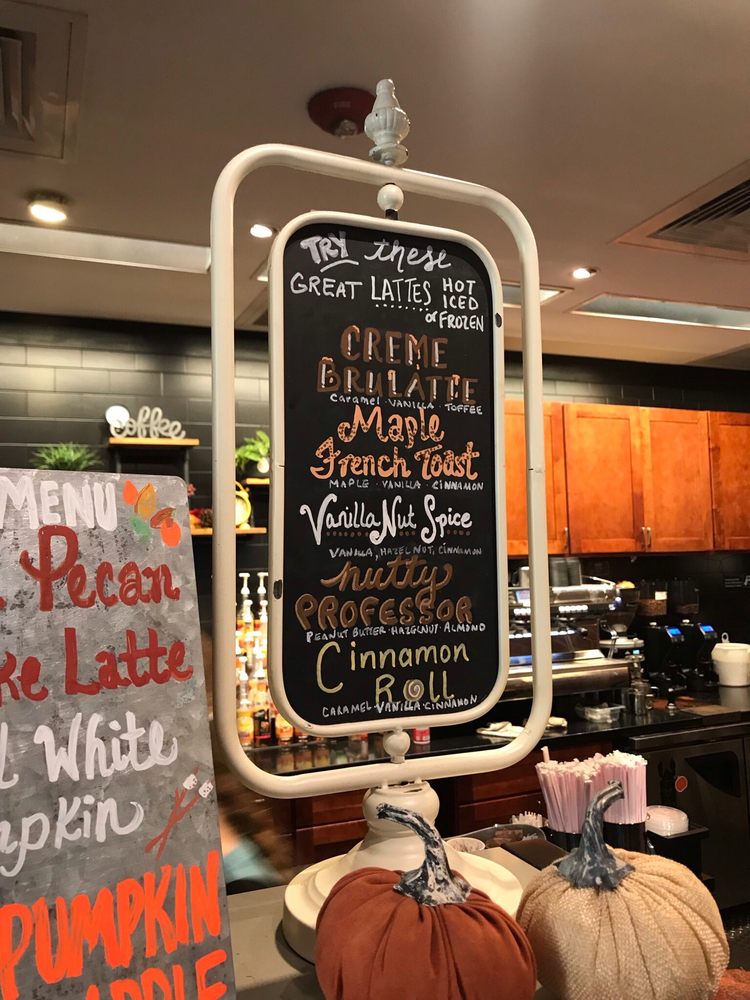 TRY these
GREAT LATTES HOT
ICED
or FROZEN
CREME
BRULATTE
CARAMEL · VANILLA · TOFFEE
Maple
French Toast
MAPLE · VANILLA · CINNAMON
Vanilla Nut Spice
VANILLA, HAZELNUT, CINNAMON
nutty
PROFESSOR
PEANUT BUTTER · HAZELNUT · ALMOND
Cinnamon
Roll
CARAMEL · VANILLA · CINNAMON
coffee
MENU
Pecan
ke Latte
l White
mpkin
PUMPKIN
APPLE